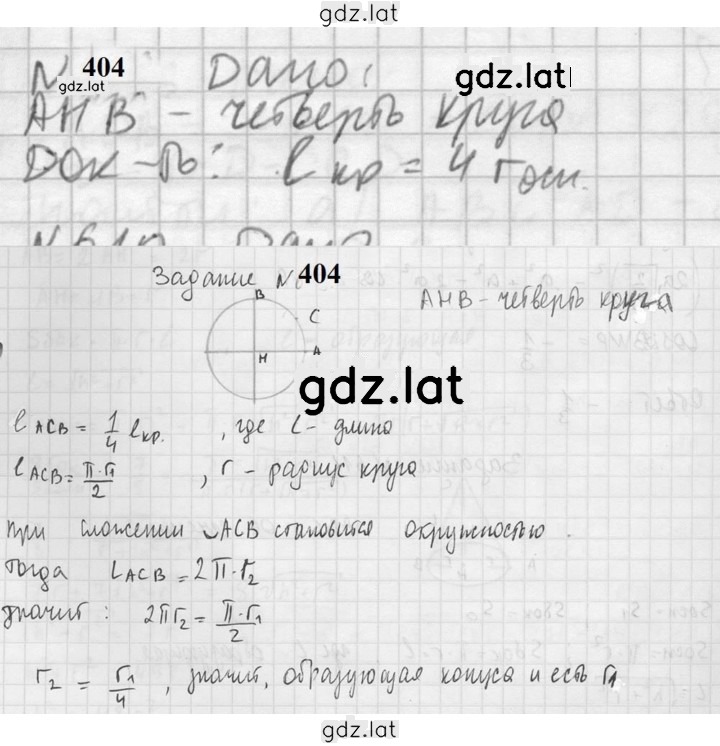 gdz.lat
N 404 Дано:
gdz.lat
gdz.lat
AHB - четверть круга
Док-ть: l кр = 4 r осн.
Дано
Задание № 404
B
C
H
A
AHB - четверть круга
gdz.lat
l ACB = 1/4 l кр. , где l - длина
l ACB = π·r1/2 , r - радиус круга
при сложении ◡ACB становится окружностью.
Тогда LACB = 2π·r2
значит: 2πr2 = π·r1/2
r2 = r1/4 , значит, образующая конуса и есть r1
gdz.lat